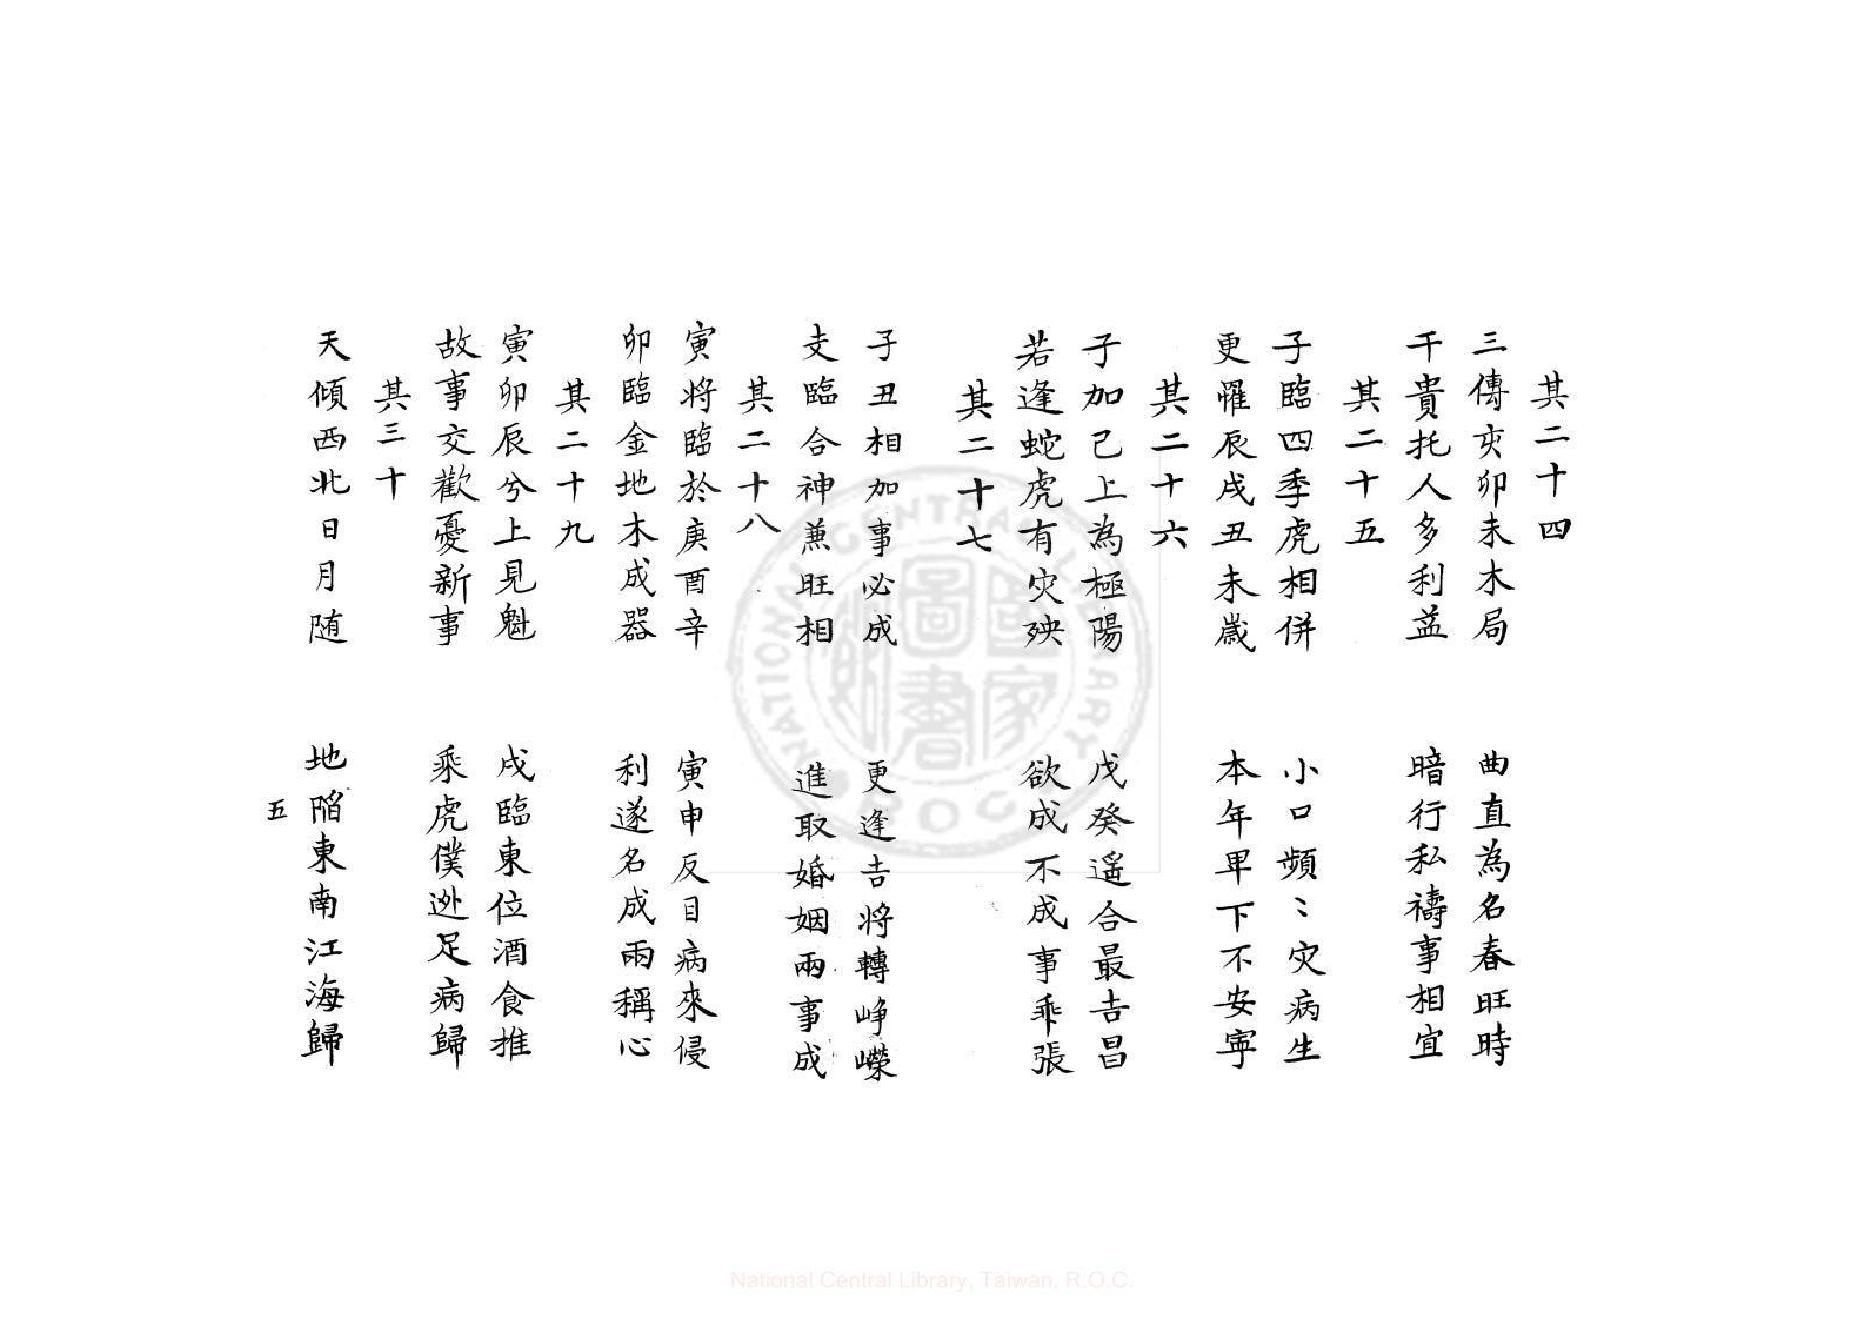 其二十四
三傳亥卯未木局　曲直為名春旺時
干貴托人多利益　暗行私禱事相宜
其二十五
子臨四季虎相併　小口頻〻灾病生
更罹辰戌丑未歲　本年早下不安寧
其二十六
子加己上為極陽　戊癸遥合最吉昌
若逢蛇虎有灾殃　欲成不成事乖張
其二十七
子丑相加事必成　更逢吉將轉崢嶸
支臨合神兼旺相　進取婚姻兩事成
其二十八
寅将臨於庚酉辛　寅申反目病來侵
卯臨金地木成器　利遂名成兩稱心
其二十九
寅卯辰兮上見魁　戌臨東位酒食推
故事交歡憂新事　乘虎僕逃足病歸
其三十
天傾西北日月随　地陷東南江海歸
五
NATIONAL CENTRAL LIBRARY R.O.C.
國家圖書館
National Central Library, Taiwan, R.O.C.